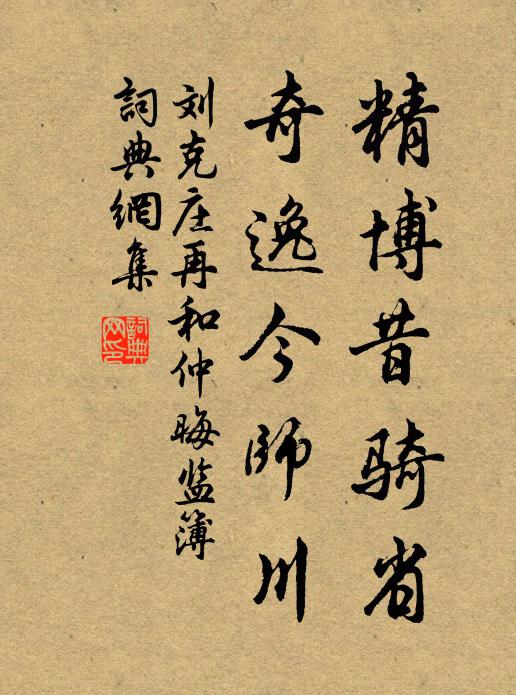 精博昔骑省
奇逸今師川
刘克庄再和仲晦监簿
詞典網集
詞典网印